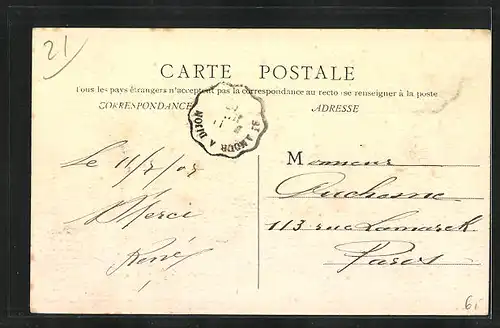 21
CARTE POSTALE
Tous les pays étrangers n'acceptent pas la correspondance au recto : se renseigner à la poste
CORRESPONDANCE
ADRESSE
ST AMOUR A DIJON
Le 11/7/05
Monsieur
Duchesne
Merci
113 rue Lamarck
René
Paris